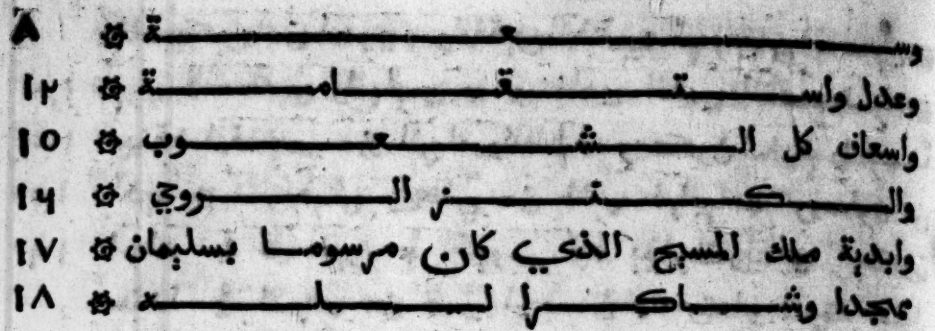 وســـعـــة ۞ ٨
وعدل واســتــقــامــة ۞ ١٢
واسعاف كل الــشــعــوب ۞ ١٥
والــكــنــز الــروحي ۞ ١٦
وابدية ملك المسيح الذي كان مرسوما بسليمان ۞ ١٧
ممجدا وشــاكــرا لــلــه ۞ ١٨